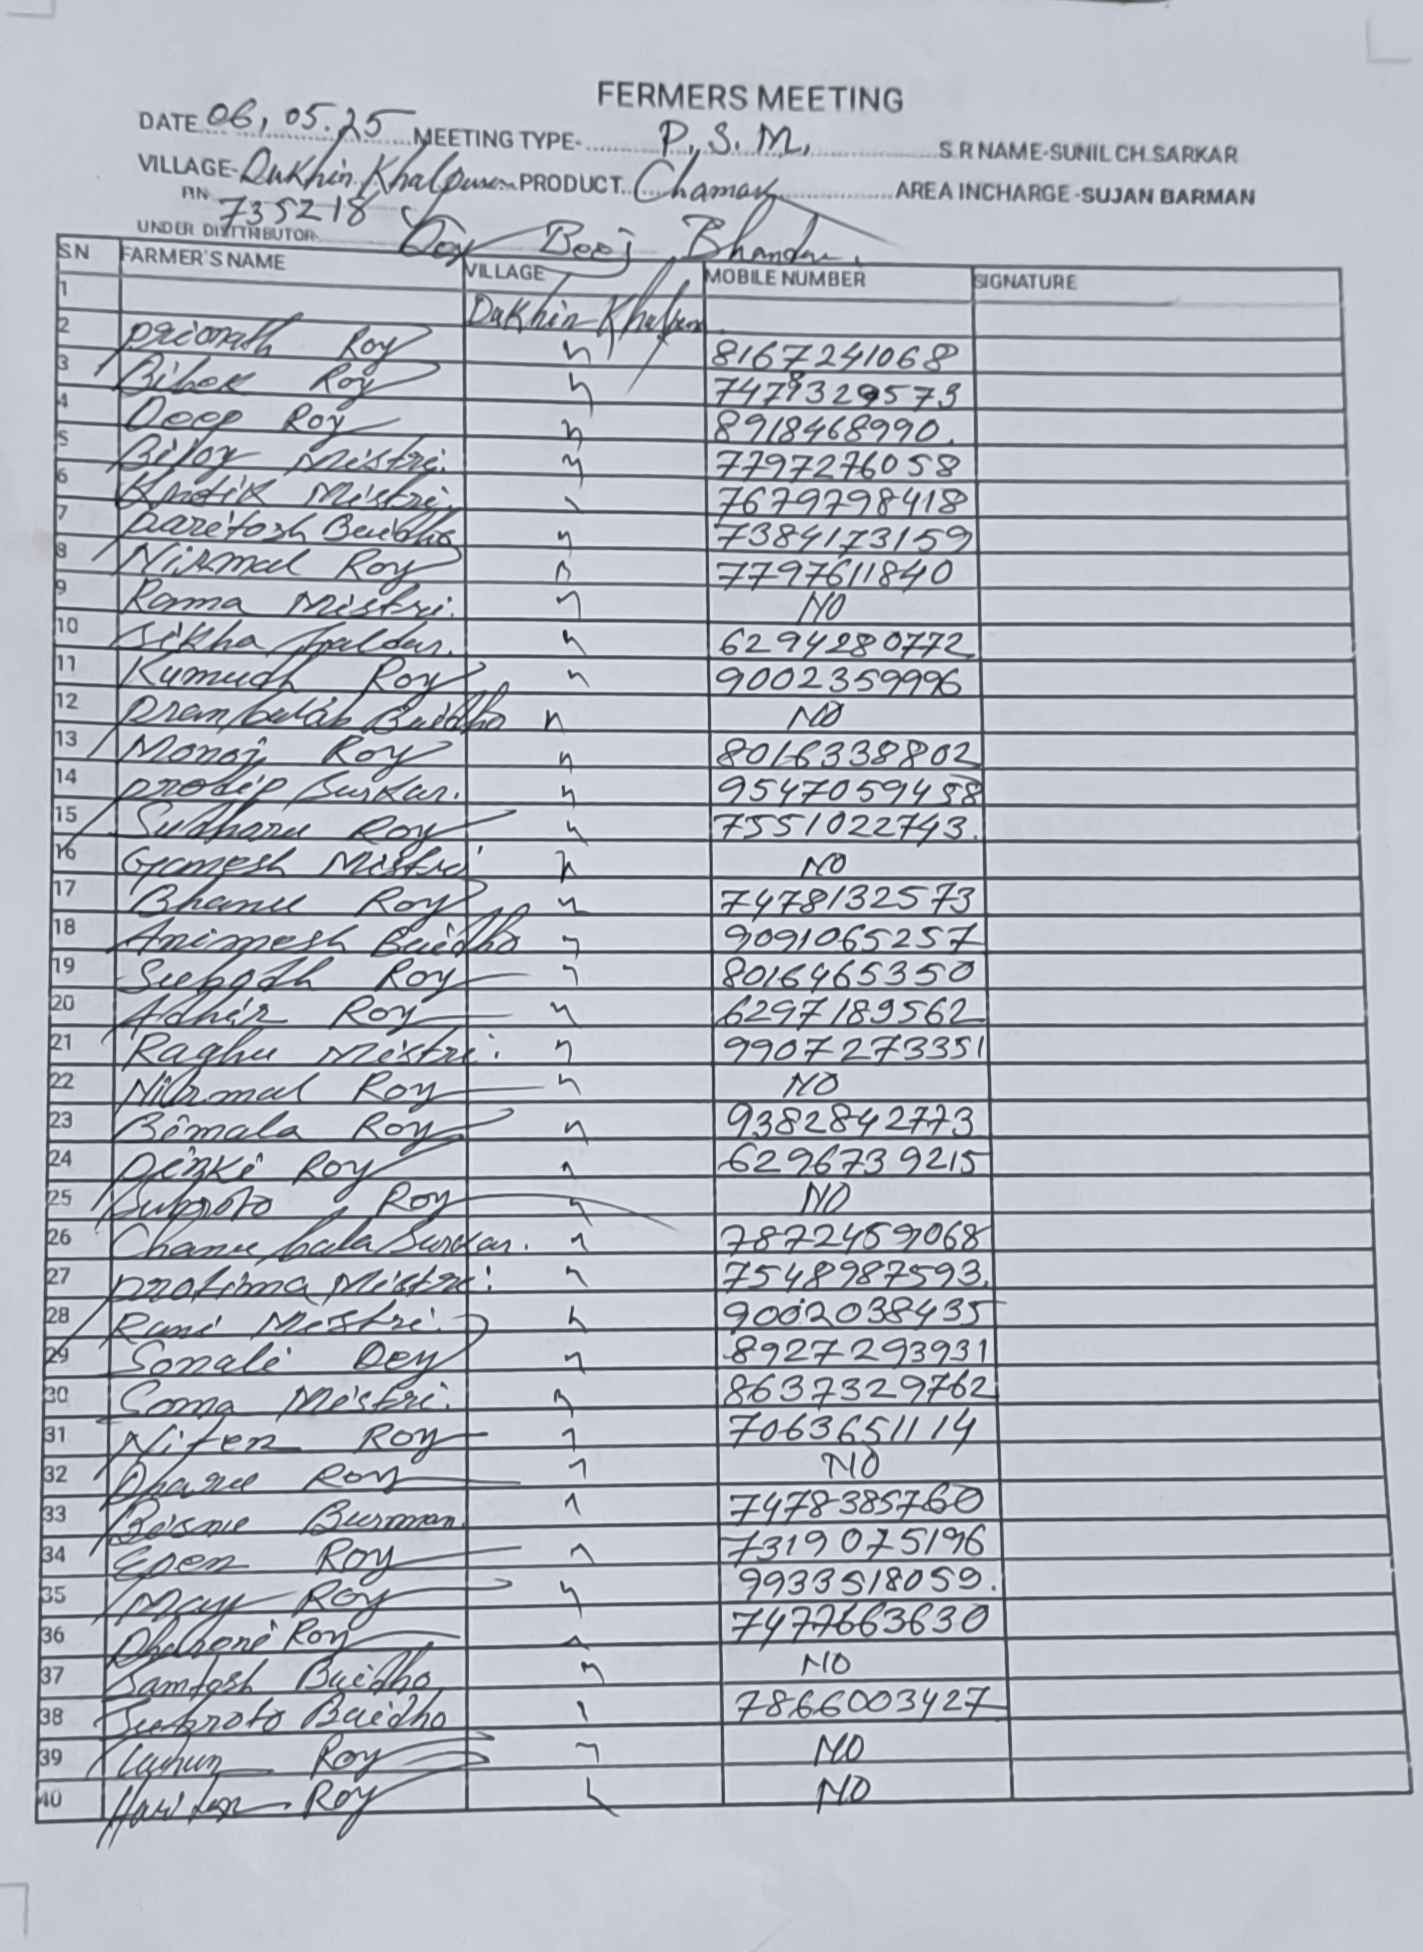 FERMERS MEETING
DATE 06, 05.25 MEETING TYPE- P. S. M. S.R NAME-SUNIL CH.SARKAR
VILLAGE- Dakhin PRODUCT Chamak AREA INCHARGE -SUJAN BARMAN
735218
UNDER DISTTRIBUTOR Beej Bhandar.
SN FARMER'S NAME VILLAGE MOBILE NUMBER SIGNATURE
1 Dakhin
2 Prionath Roy 〃 8167241068
3 Bibek Roy 〃
4 Deep Roy 〃 8918468990.
5 Bijoy Mistri. 〃 7797276058
6 Mistri. 〃 7679798418
7 Paretosh Baidho 〃 7384173159
8 Nirmal Roy 〃 7797611840
9 Rama Mistri. 〃 NO
10 Sikha Haldar. 〃 6294280772
11 Kumudh Roy 〃 9002359996
12 Baidho 〃 NO
13 Monoj Roy 〃 8016338802
14 Prodip Sarkar. 〃 9547059458
15 Roy 〃 7551022743.
16 Ganesh Mistri 〃 NO
17 Bhanu Roy 〃 7478132573
18 Animesh Baidho 〃 9091065257
19 Subodh Roy 〃 8016465350
20 Adhir Roy 〃 6297189562
21 Raghu Mistri. 〃 9907273351
22 Roy 〃 NO
23 Bimala Roy 〃 9382842773
24 Pinki Roy 〃 6296739215
25 Subroto Roy 〃 NO
26 Chanu bala Sarkar. 〃 7872459068
27 Protima Mistri. 〃 7548987593.
28 Rani Mistri. 〃 9002038435
29 Sonali Dey 〃 8927293931
30 Soma Mistri. 〃 8637329762
31 Niten Roy 〃 7063651114
32 Roy 〃 NO
33 Burman. 〃 7478385760
34 Epen Roy 〃 7319075196
35 May Roy 〃 9933518059.
36 Roy 〃 7477663630
37 Santosh Baidho 〃 NO
38 Subroto Baidho 〃 7866003427
39 Roy 〃 NO
40 Roy 〃 NO